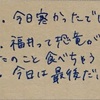 ・今日寒かったで
・福井って恐竜が
たのこと食べちゃう
・今日は最後だし